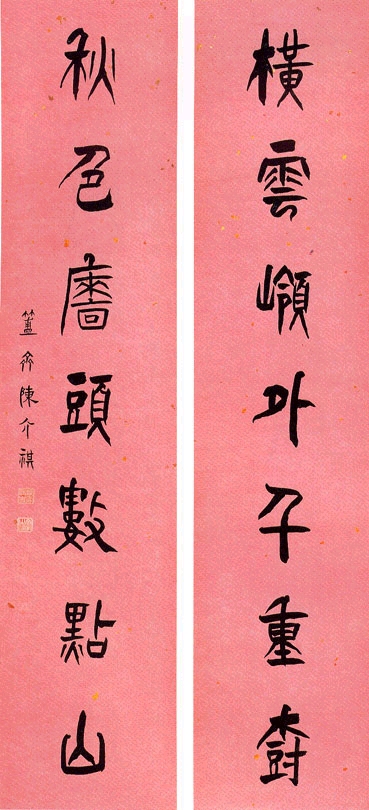 橫雲嶺外千重樹
秋色廧頭數點山
簠齋陳介祺